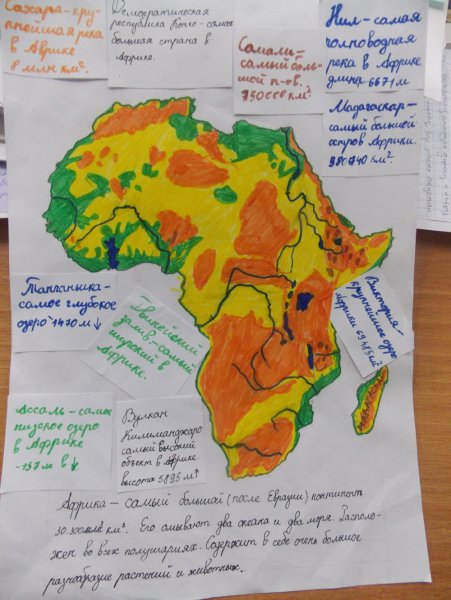 Сахара-кру-
пнейшая река
в Африке
8 млн км².
Демократическая
республика Конго - самая
большая страна в
Африке.
Самали-
самый боль-
шой п-ов.
750000 км².
Нил - самая
полноводная
река в Африке
длина - 6671 м
Мадагаскар-
самый большой
остров Африки.
Танганьика-
самое глубокое
озеро 1470 м↓
Гвинейский
залив - самый
в
Африке.
Виктория
крупнейшее озеро
Африки
Ассаль - самое
низкое озеро
в Африке
-157 м в↓
Вулкан
Килиманджаро
самый высокий
объект в Африке.
высота 5895 м↑
Африка - самый большой (после Евразии) континент
км². Его омывают два океана и два моря. Располо-
жен во всех полушариях. Содержит в себе очень большое
разнообразие растений и животных.